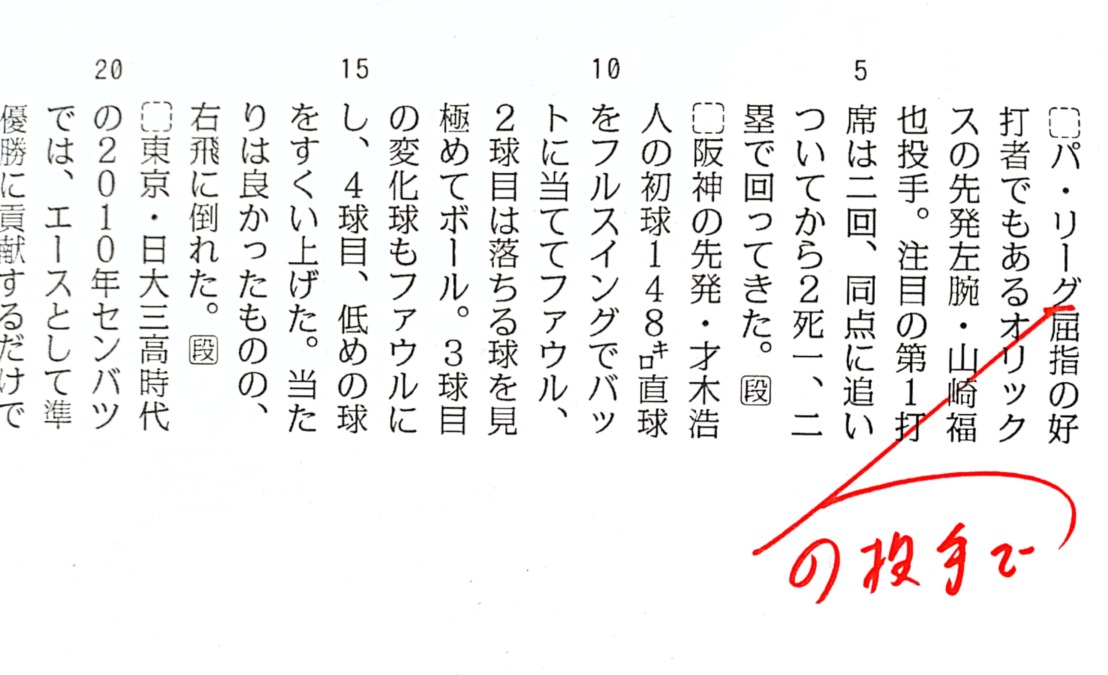 パ・リーグ屈指の好
打者でもあるオリック
スの先発左腕・山崎福
也投手。注目の第1打
席は二回、同点に追い
ついてから2死一、二
塁で回ってきた。段
阪神の先発・才木浩
人の初球148㌔直球
をフルスイングでバッ
トに当ててファウル、
2球目は落ちる球を見
極めてボール。3球目
の変化球もファウルに
し、4球目、低めの球
をすくい上げた。当た
りは良かったものの、
右飛に倒れた。段
東京・日大三高時代
の2010年センバツ
では、エースとして準
優勝に貢献するだけで
5
10
15
20
の投手で